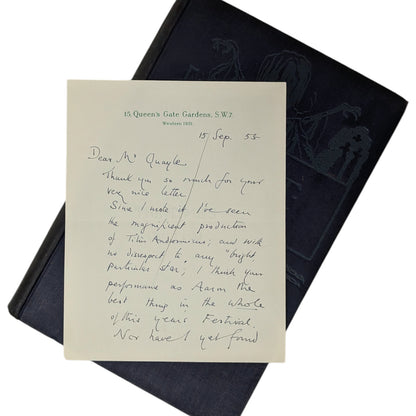 15, Queen's Gate Gardens, S.W.7.
15 Sep. 55
Dear Mr Quayle
Thank you so much for your
very nice letter.
Since I wrote it I've seen
the magnificent production
of Titus Andronicus; and with
no disrespect to any "bright
particular star", I think your
performance as Aaron the
best thing in the whole
of this year's Festival.
Nor have I yet found